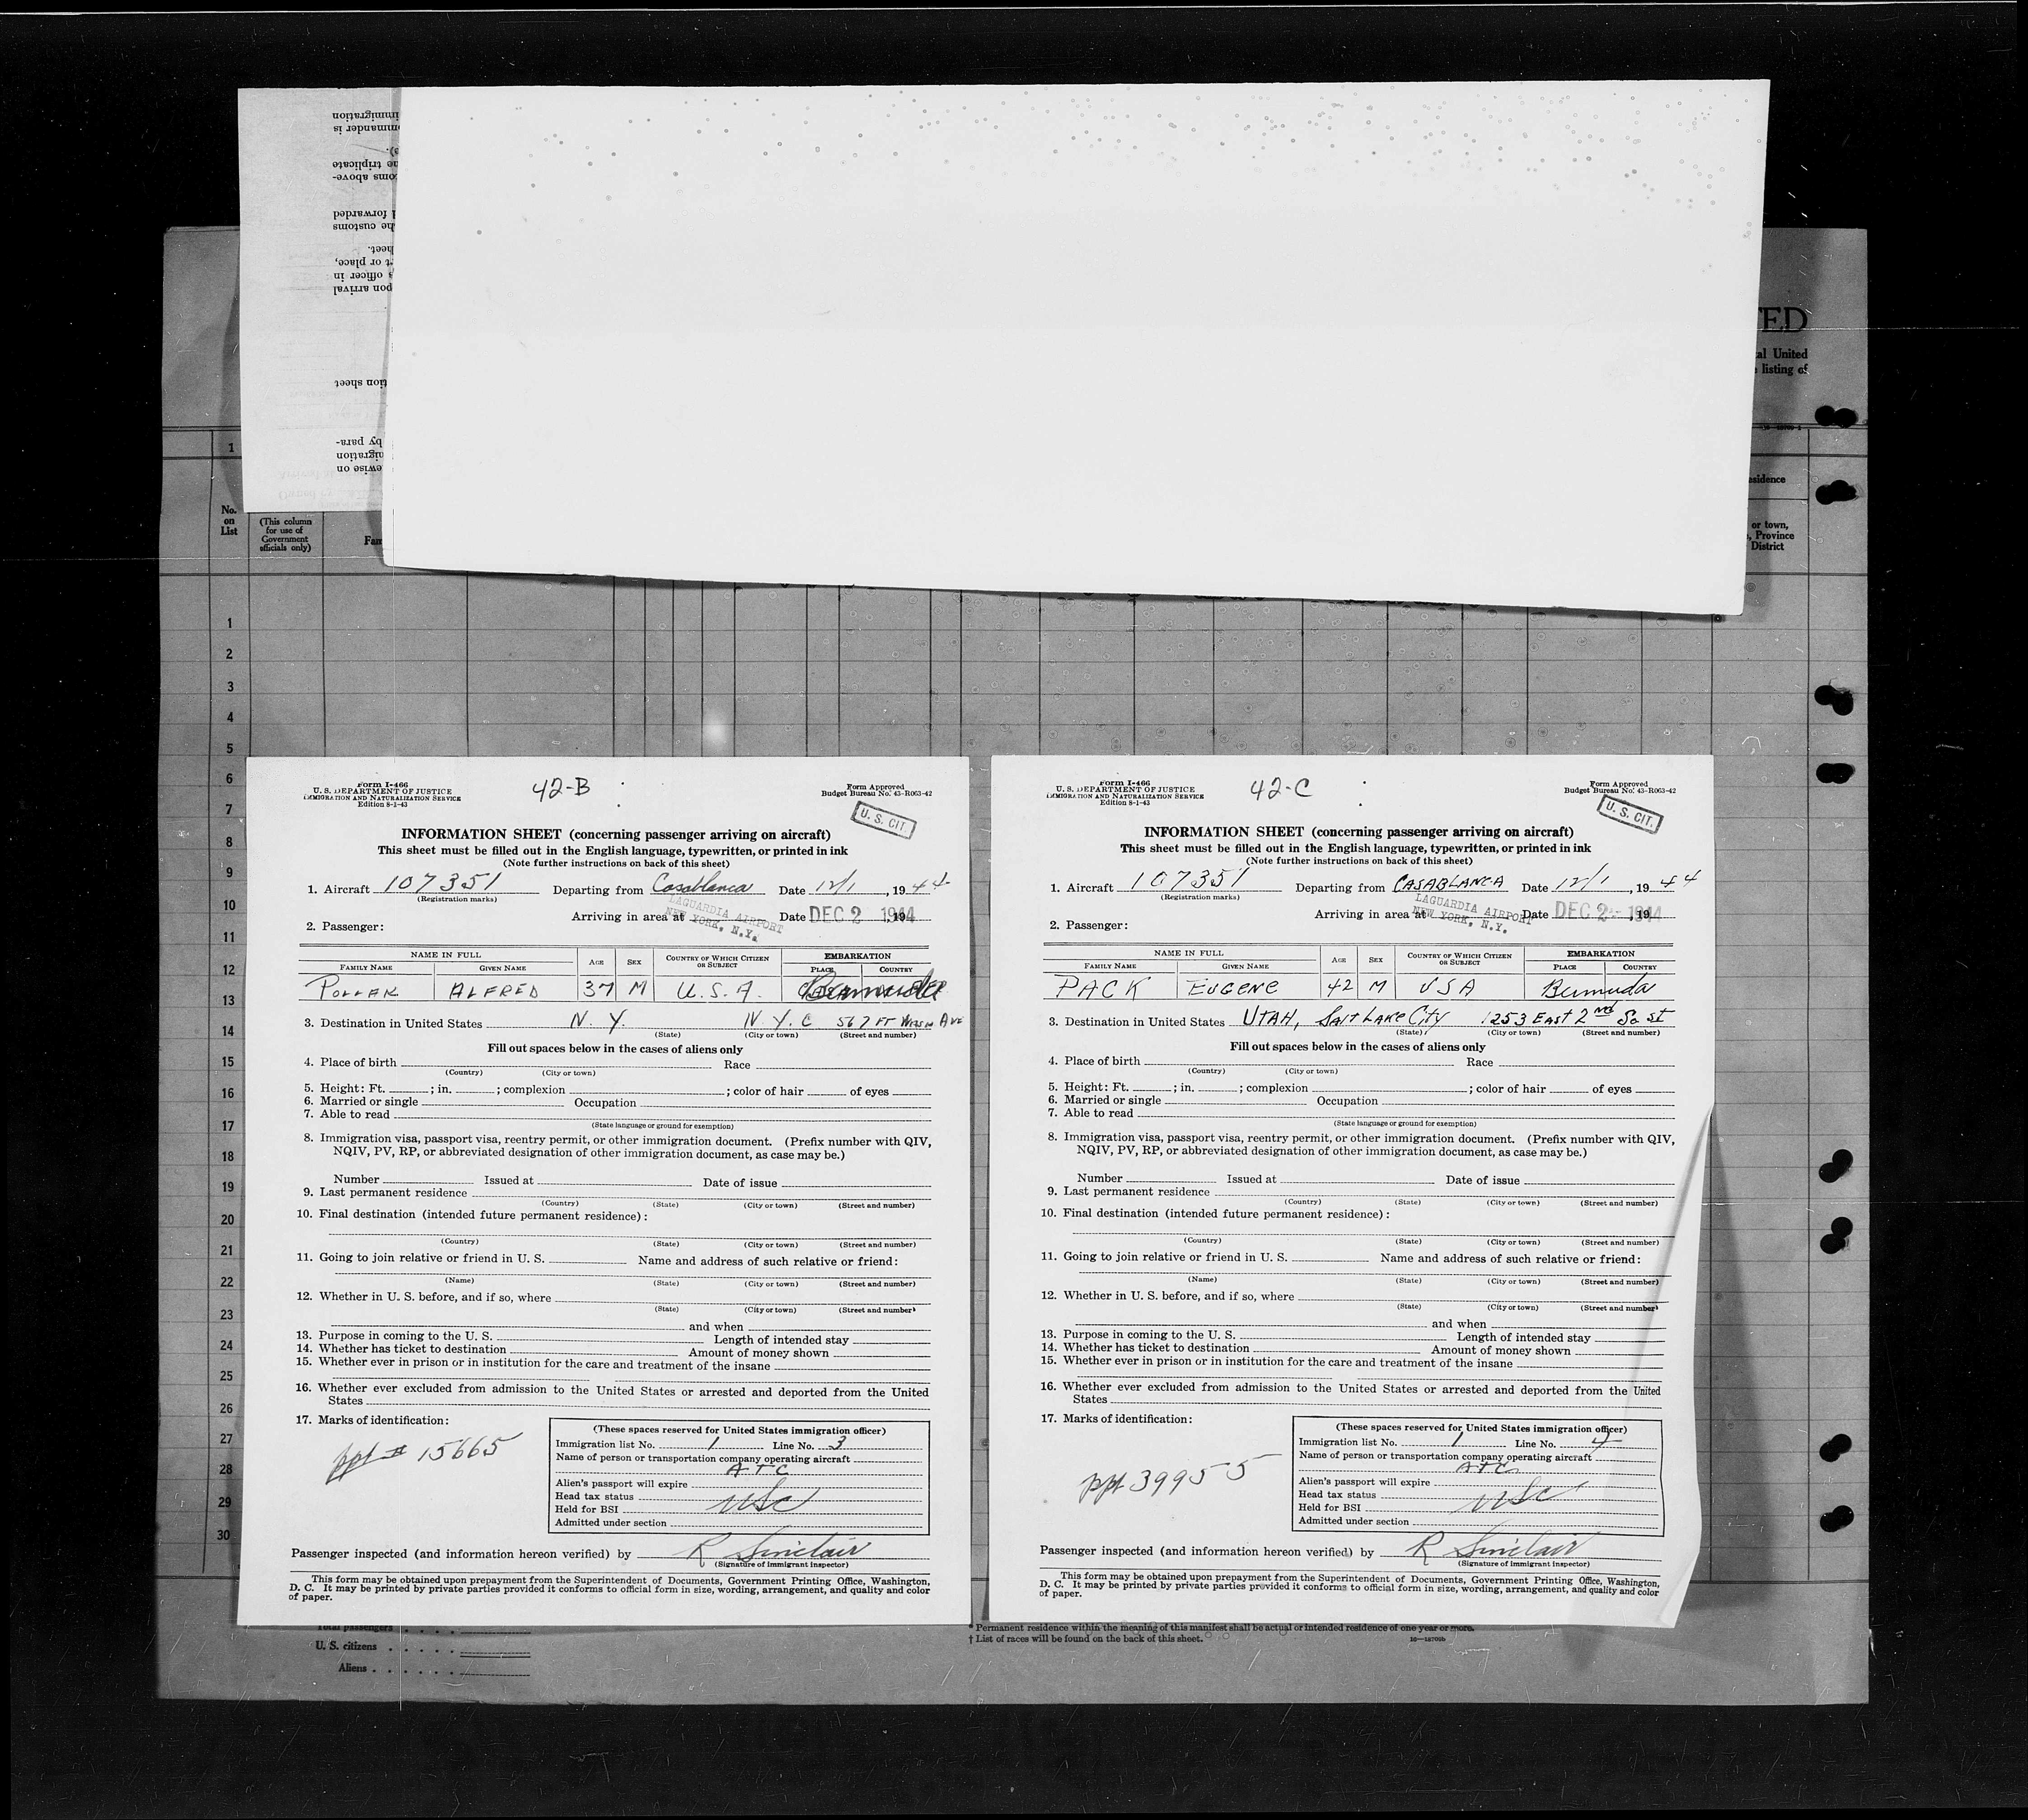 mmigration
mmander is
e triplicate
oms above-
d forwarded
he customs
heet.
t or place,
s officer in
pon arrival
tion sheet
by para-
migration
ewise on
TED
al United
listing of
1
esidence
No.
on
List
(This column
for use of
Government
officials only)
Fam
or town,
, Province
District
1
2
3
4
5
6
7
8
9
10
11
12
13
14
15
16
17
18
19
20
21
22
23
24
25
26
27
28
29
30
Form I-466
U. S. DEPARTMENT OF JUSTICE
IMMIGRATION AND NATURALIZATION SERVICE
Edition 8-1-43
42-B
Form Approved
Budget Bureau No. 43-R063-42
U. S. CIT.
INFORMATION SHEET (concerning passenger arriving on aircraft)
This sheet must be filled out in the English language, typewritten, or printed in ink
(Note further instructions on back of this sheet)
1. Aircraft 107351 Departing from Casablanca Date 12/1, 1944
(Registration marks)
Arriving in area at LAGUARDIA AIRPORT NEW YORK, N.Y. Date DEC 2 1944, 19
2. Passenger:
NAME IN FULL AGE SEX COUNTRY OF WHICH CITIZEN OR SUBJECT EMBARKATION
FAMILY NAME GIVEN NAME PLACE COUNTRY
POLLAK ALFRED 37 M U.S.A. Bermuda
3. Destination in United States N.Y. N.Y.C 567 FT WASH AVE
(State) (City or town) (Street and number)
Fill out spaces below in the cases of aliens only
4. Place of birth Race
(Country) (City or town)
5. Height: Ft. ; in. ; complexion ; color of hair of eyes
6. Married or single Occupation
7. Able to read
(State language or ground for exemption)
8. Immigration visa, passport visa, reentry permit, or other immigration document. (Prefix number with QIV,
NQIV, PV, RP, or abbreviated designation of other immigration document, as case may be.)
Number Issued at Date of issue
9. Last permanent residence
(Country) (State) (City or town) (Street and number)
10. Final destination (intended future permanent residence):
(Country) (State) (City or town) (Street and number)
11. Going to join relative or friend in U. S. Name and address of such relative or friend:
(Name) (State) (City or town) (Street and number)
12. Whether in U. S. before, and if so, where
(State) (City or town) (Street and number)
and when
13. Purpose in coming to the U. S. Length of intended stay
14. Whether has ticket to destination Amount of money shown
15. Whether ever in prison or in institution for the care and treatment of the insane
16. Whether ever excluded from admission to the United States or arrested and deported from the United
States
17. Marks of identification:
ppt # 15665
(These spaces reserved for United States immigration officer)
Immigration list No. 1 Line No. 3
Name of person or transportation company operating aircraft
ATC
Alien's passport will expire
Head tax status USC
Held for BSI
Admitted under section
Passenger inspected (and information hereon verified) by R Sinclair
(Signature of immigrant inspector)
This form may be obtained upon prepayment from the Superintendent of Documents, Government Printing Office, Washington,
D. C. It may be printed by private parties provided it conforms to official form in size, wording, arrangement, and quality and color
of paper.
Form I-466
U. S. DEPARTMENT OF JUSTICE
IMMIGRATION AND NATURALIZATION SERVICE
Edition 8-1-43
42-C
Form Approved
Budget Bureau No. 43-R063-42
U. S. CIT.
INFORMATION SHEET (concerning passenger arriving on aircraft)
This sheet must be filled out in the English language, typewritten, or printed in ink
(Note further instructions on back of this sheet)
1. Aircraft 107351 Departing from CASABLANCA Date 12/1, 1944
(Registration marks)
Arriving in area at LAGUARDIA AIRPORT NEW YORK, N.Y. Date DEC 2 - 1944, 19
2. Passenger:
NAME IN FULL AGE SEX COUNTRY OF WHICH CITIZEN OR SUBJECT EMBARKATION
FAMILY NAME GIVEN NAME PLACE COUNTRY
PACK EUGENE 42 M USA Bermuda
3. Destination in United States UTAH, SALT LAKE CITY 1253 EAST 2nd So St
(State) (City or town) (Street and number)
Fill out spaces below in the cases of aliens only
4. Place of birth Race
(Country) (City or town)
5. Height: Ft. ; in. ; complexion ; color of hair of eyes
6. Married or single Occupation
7. Able to read
(State language or ground for exemption)
8. Immigration visa, passport visa, reentry permit, or other immigration document. (Prefix number with QIV,
NQIV, PV, RP, or abbreviated designation of other immigration document, as case may be.)
Number Issued at Date of issue
9. Last permanent residence
(Country) (State) (City or town) (Street and number)
10. Final destination (intended future permanent residence):
(Country) (State) (City or town) (Street and number)
11. Going to join relative or friend in U. S. Name and address of such relative or friend:
(Name) (State) (City or town) (Street and number)
12. Whether in U. S. before, and if so, where
(State) (City or town) (Street and number)
and when
13. Purpose in coming to the U. S. Length of intended stay
14. Whether has ticket to destination Amount of money shown
15. Whether ever in prison or in institution for the care and treatment of the insane
16. Whether ever excluded from admission to the United States or arrested and deported from the United
States
17. Marks of identification:
ppt 39955
(These spaces reserved for United States immigration officer)
Immigration list No. 1 Line No. 4
Name of person or transportation company operating aircraft
ATC
Alien's passport will expire
Head tax status USC
Held for BSI
Admitted under section
Passenger inspected (and information hereon verified) by R Sinclair
(Signature of immigrant inspector)
This form may be obtained upon prepayment from the Superintendent of Documents, Government Printing Office, Washington,
D. C. It may be printed by private parties provided it conforms to official form in size, wording, arrangement, and quality and color
of paper.
Total passengers
U. S. citizens
Aliens
* Permanent residence within the meaning of this manifest shall be actual or intended residence of one year or more.
† List of races will be found on the back of this sheet.